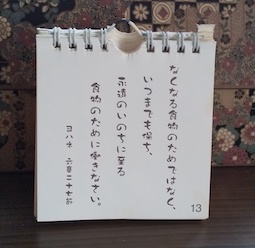 なくなる食物のためではなく、
いつまでも保ち、
永遠のいのちに至る
食物のために働きなさい。
ヨハネ 六章二十七節
13